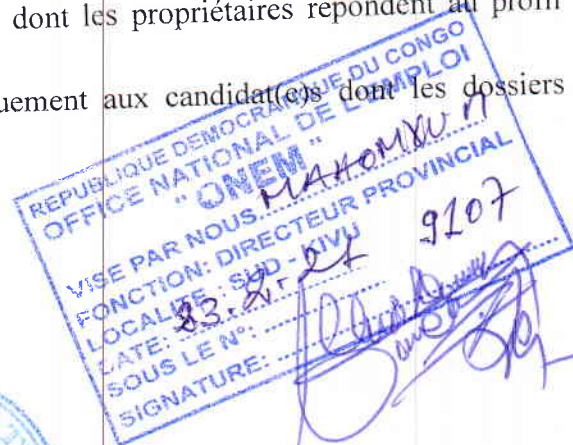 dont les propriétaires répondent au profil
uement aux candidat(e)s dont les dossiers
REPUBLIQUE DEMOCRATIQUE DU CONGO
OFFICE NATIONAL DE L'EMPLOI
"ONEM"
VISE PAR NOUS
FONCTION: DIRECTEUR PROVINCIAL
LOCALITE : SUD - KIVU
DATE: 23.2.21
SOUS LE N°: 9107
SIGNATURE: